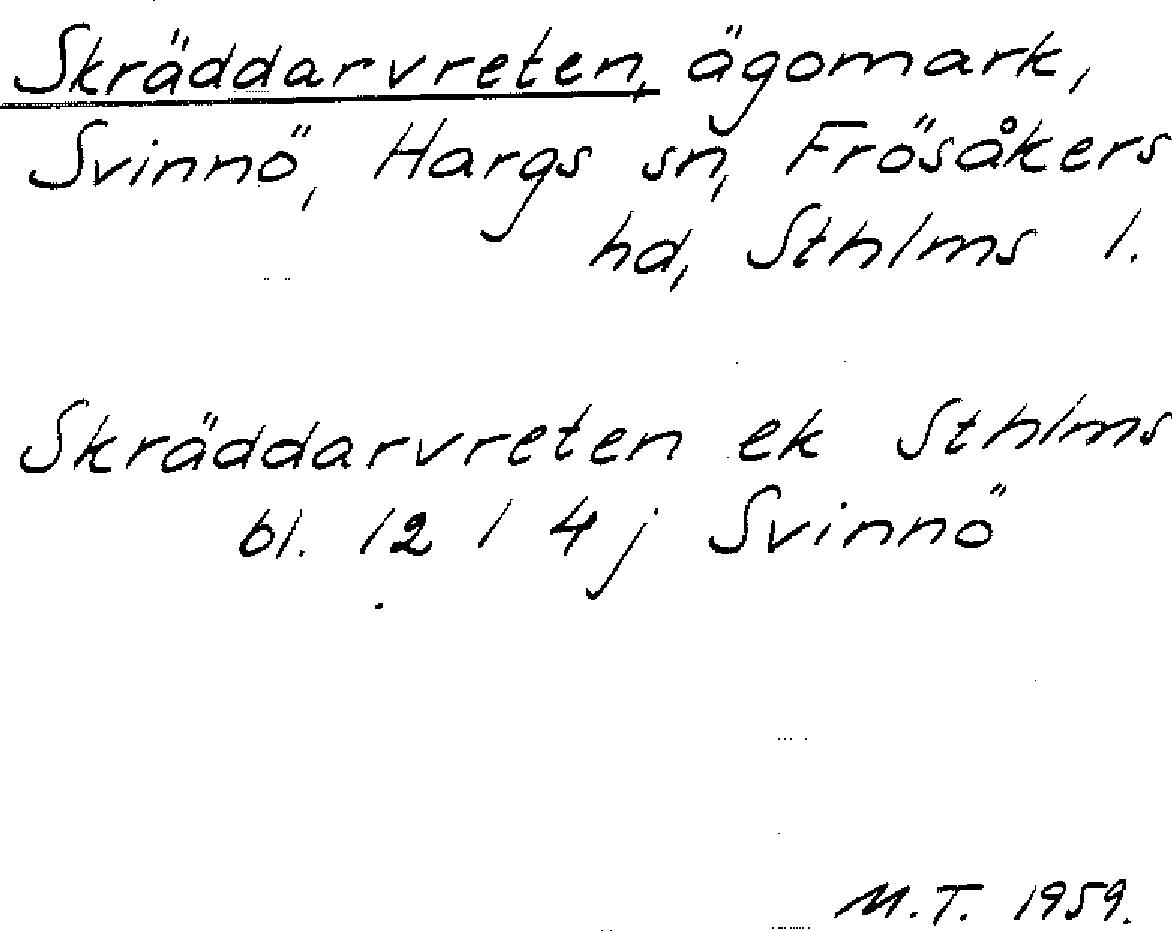 Skräddarvreten, ägomark,
Svinnö, Hargs sn, Frösåkers
hd, Sthlms l.
Skräddarvreten ek Sthlms
bl. 12 l 4 j Svinnö
M.T. 1959.